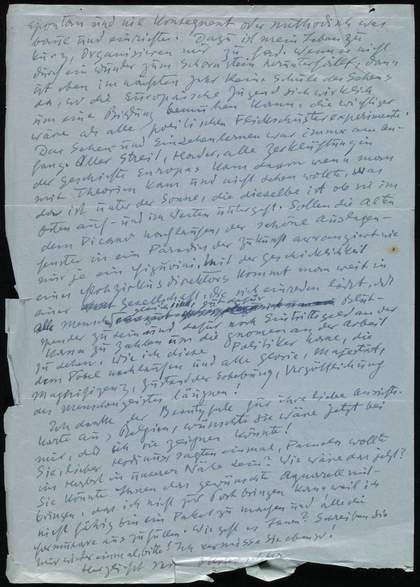 spontan und nie konsequent oder methodisch was
baue und einrichte. Dazu ist mein Leben zu
kurz, Organisieren mir zu fad. Wenn es nicht
durch ein Wunder zum Schornstein herunterfällt, dann
ist eben im nächsten Jahr keine Schule des Sehens
da, wo die Europäische Jugend sich wirklich
um eine Bildung bemühen kann, die wichtiger
wäre als alle politischen Flickschusterexperimente.
Das Sehen und Einsehenlernen war immer am An-
fang. Aller Streit, Hader, alle Zerklüftung in
der Geschichte Europas kam davon wenn man
mit Theorien kam und nicht sehen wollte, was
da ist unter der Sonne, die dieselbe ist ob sie im
Osten auf- und im Westen untergeht. Sollen die Alten
dem Picasso nachlaufen, der schöne Auslagen-
fenster in ein Paradies der Zukunft arrangiert wie
nur je ein Figurini. Mit der Geschicklichkeit
eines Zirkusdirektors kommt man weit in
einer Gesellschaft die sich einreden lässt, daß
alle Menschen
zu sein und dafür noch Eintrittsgeld an der
Kassa zu zahlen um die Gnomen an der Arbeit
zu sehen. Wie ich diese Politiker hasse, die
dem Pöbel nachlaufen und alle Glorie, Majestät,
Magnifizenz, Zustand der Erhebung, Vergöttlichung
des Menschengeistes läugnen.
Ich danke der für ihre liebe Ansichts-
karte aus Belgien, wünschte sie wäre jetzt bei
mir, daß ich sie zeichnen könnte!
Sie, lieber sagten einmal, Pamela wollte
im Herbst in unserer Nähe sein? Wie wäre das jetzt?
Sie könnte Ihnen das gewünschte Aquarell mit-
bringen, das ich nicht zur Post bringen kann weil ich
nicht fähig bin ein Paket zu machen und alle die
Formulare auszufüllen. Wie geht es Ihnen? Schreiben Sie
mir wieder einmal bitte! Ich vermisse Sie
Herzlichst Ihr